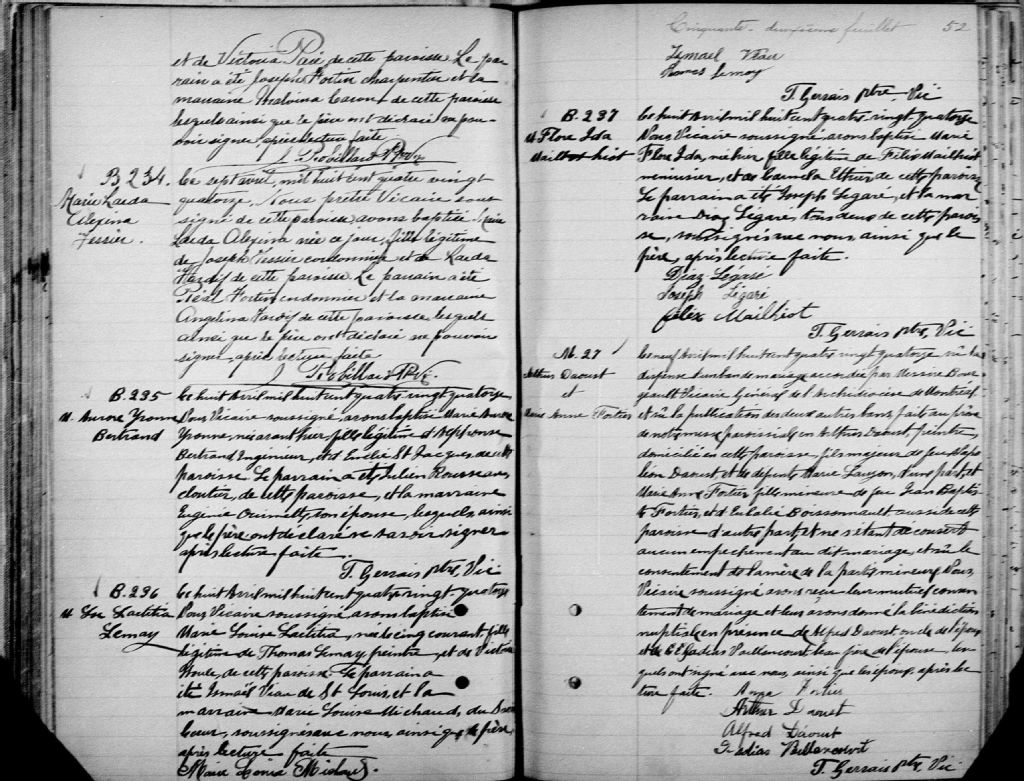 et de Victoria Paré, de cette paroisse Le pa
rain a été Joseph Fortin charpentier et la
marraine Malvina Caron de cette paroisse
lesquels ainsi que le père ont déclaré ne pou-
voir signer, après lecture faite
J. Robillard Ptre V.
B 234.
Marie Laeda
Alexina
Tessier.
Le sept avril mil huit cent quatre vingt
quatorze, Nous prêtre Vicaire sous
signé de cette paroisse avons baptisé Marie
Laeda Alexina née ce jour, fille légitime
de Joseph Tessier cordonnier et de Laeda
Hardy de cette paroisse. Le parrain a été
Fortin cordonnier et la marraine
Angelina Hardy de cette paroisse lesquels
ainsi que le père ont déclaré ne pouvoir
signer, après lecture faite
J. Robillard Ptre V.
B. 235
M. Aurore Yvonne
Bertrand
Le huit Avril mil huit cent quatre vingt quatorze
Nous Vicaire soussigné avons baptisé Marie Aurore
Yvonne, née avant hier, fille légitime d'Alphonse
Bertrand Engineur, et d'Emélie St Jacques de cette
paroisse Le parrain a été Julien Rousseau,
cloutier, de cette paroisse, et la marraine
Eugénie Ouimette, son épouse, lesquels ainsi
que le père ont déclaré ne savoir signer
après lecture faite.
T. Gervais ptre, Vic
B. 236
M. Lse Laetitia
Lemay
Le huit Avril mil huit cent quatre vingt quatorze
Nous Vicaire soussigné avons baptisé
Marie Louise Laetitia, née le cinq courant, fille
légitime de Thomas Lemay peintre, et de Victoria
Houle, de cette paroisse. Le parrain a
été Ismaël Viau de St Louis, et la
marraine Marie Louise Michaud, du Sacré
Coeur, soussignés avec nous ainsi que le père,
après lecture faite
Marie Louisa Michaud.
Cinquante-deuxième feuillet 52
Ismael Viau
Thomas Lemay
T. Gervais ptre, Vic
B. 237
M Flore Ida
Mailhot hiot
Le huit Avril mil huit cent quatre vingt quatorze
Nous Vicaire soussigné avons baptisé Marie
Flore Ida, née hier fille légitime de Félix Mailhiot
menuisier, et de Ethier de cette paroisse
Le parrain a été Joseph Légaré, et la mar
raine Diaz Légaré, tous deux de cette parois
se, soussignés avec nous ainsi que le
père, après lecture faite.
Diaz Légaré
Joseph Légaré
félix Mailhiot
T. Gervais ptre, Vic
M. 27
Arthur Daoust
et
Marie Anne Fortier
Le neuf Avril mil huit cent quatre vingt quatorze, vû la
dispense d'un ban de mariage accordée par Messire Bour
geault Vicaire Général de l'Archidiocèse de Montréal
et vû la publication des deux autres bans, faite au prône
de notre messe paroissiale, en Arthur Daoust, peintre,
domicilié en cette paroisse, fils majeur de feu Napo
léon Daoust et de défunte Marie Lauzon, d'une part, et
Marie Anne Fortier fille mineure de feu Jean Baptis
te Fortier, et d'Eulalie Boissonnault aussi de cette
paroisse d'autre part, et ne s'étant découvert
aucun empêchement au dit mariage, et vû le
consentement de la mère de la partie mineure, Nous,
Vicaire soussigné avons reçu leur mutuel consen
tement de mariage et leur avons donné la bénédiction
nuptiale, en présence de Alfred Daoust, oncle de l'époux,
et de Elzadias Vaillencourt beau frère de l'épouse, les
quels ont signé avec nous, ainsi que les époux, après lec
ture faite. Anna Fortier
Arthur Daoust
Alfred Daoust
T. Gervais ptre, Vic